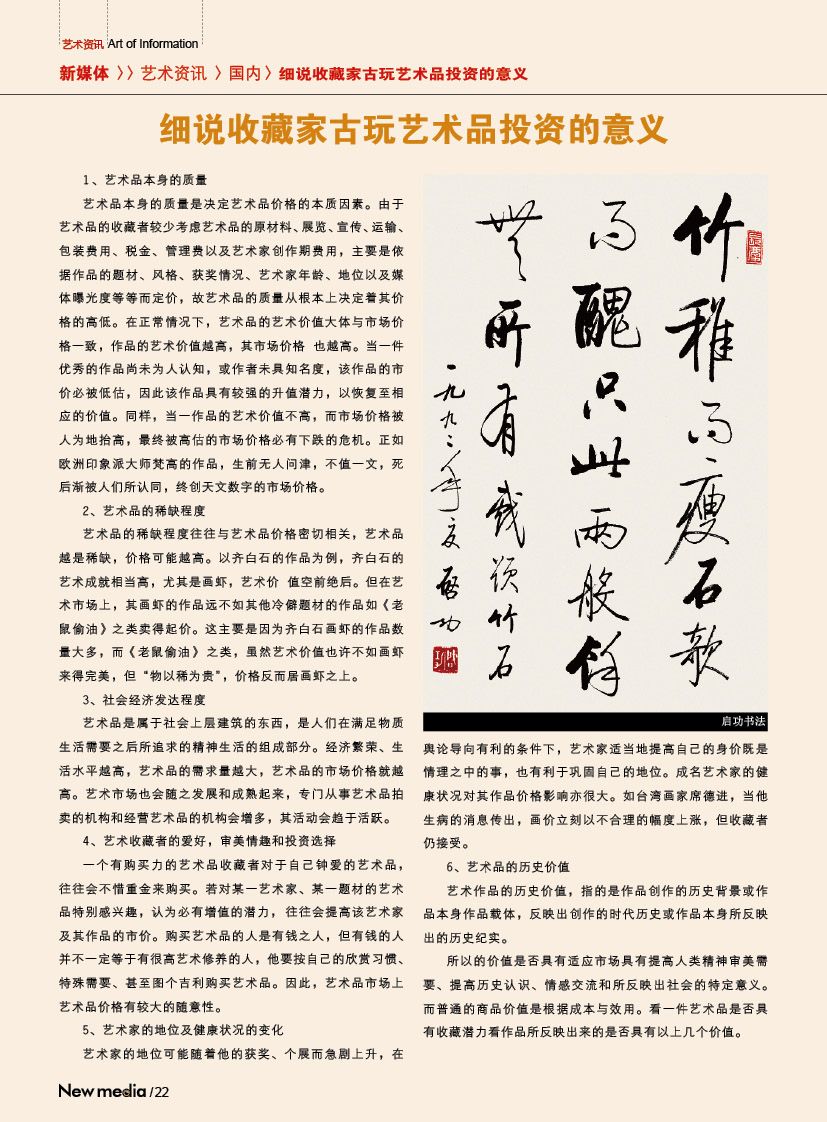 艺术资讯 Art of Information
新媒体 〉〉艺术资讯 〉国内〉细说收藏家古玩艺术品投资的意义
细说收藏家古玩艺术品投资的意义
1、艺术品本身的质量
艺术品本身的质量是决定艺术品价格的本质因素。由于
艺术品的收藏者较少考虑艺术品的原材料、展览、宣传、运输、
包装费用、税金、管理费以及艺术家创作期费用，主要是依
据作品的题材、风格、获奖情况、艺术家年龄、地位以及媒
体曝光度等等而定价，故艺术品的质量从根本上决定着其价
格的高低。在正常情况下，艺术品的艺术价值大体与市场价
格一致，作品的艺术价值越高，其市场价格 也越高。当一件
优秀的作品尚未为人认知，或作者未具知名度，该作品的市
价必被低估，因此该作品具有较强的升值潜力，以恢复至相
应的价值。同样，当一作品的艺术价值不高，而市场价格被
人为地抬高，最终被高估的市场价格必有下跌的危机。正如
欧洲印象派大师梵高的作品，生前无人问津，不值一文，死
后渐被人们所认同，终创天文数字的市场价格。
2、艺术品的稀缺程度
艺术品的稀缺程度往往与艺术品价格密切相关，艺术品
越是稀缺，价格可能越高。以齐白石的作品为例，齐白石的
艺术成就相当高，尤其是画虾，艺术价 值空前绝后。但在艺
术市场上，其画虾的作品远不如其他冷僻题材的作品如《老
鼠偷油》之类卖得起价。这主要是因为齐白石画虾的作品数
量大多，而《老鼠偷油》之类，虽然艺术价值也许不如画虾
来得完美，但“物以稀为贵”，价格反而居画虾之上。
3、社会经济发达程度
艺术品是属于社会上层建筑的东西，是人们在满足物质
生活需要之后所追求的精神生活的组成部分。经济繁荣、生
活水平越高，艺术品的需求量越大，艺术品的市场价格就越
高。艺术市场也会随之发展和成熟起来，专门从事艺术品拍
卖的机构和经营艺术品的机构会增多，其活动会趋于活跃。
4、艺术收藏者的爱好，审美情趣和投资选择
一个有购买力的艺术品收藏者对于自己钟爱的艺术品，
往往会不惜重金来购买。若对某一艺术家、某一题材的艺术
品特别感兴趣，认为必有增值的潜力，往往会提高该艺术家
及其作品的市价。购买艺术品的人是有钱之人，但有钱的人
并不一定等于有很高艺术修养的人，他要按自己的欣赏习惯、
特殊需要、甚至图个吉利购买艺术品。因此，艺术品市场上
艺术品价格有较大的随意性。
5、艺术家的地位及健康状况的变化
艺术家的地位可能随着他的获奖、个展而急剧上升，在
竹稚而瘦石欹
而醜只此兩般餘
無所有戲題竹石
一九九二年夏 啓功
启功书法
舆论导向有利的条件下，艺术家适当地提高自己的身价既是
情理之中的事，也有利于巩固自己的地位。成名艺术家的健
康状况对其作品价格影响亦很大。如台湾画家席德进，当他
生病的消息传出，画价立刻以不合理的幅度上涨，但收藏者
仍接受。
6、艺术品的历史价值
艺术作品的历史价值，指的是作品创作的历史背景或作
品本身作品载体，反映出创作的时代历史或作品本身所反映
出的历史纪实。
所以的价值是否具有适应市场具有提高人类精神审美需
要、提高历史认识、情感交流和所反映出社会的特定意义。
而普通的商品价值是根据成本与效用。看一件艺术品是否具
有收藏潜力看作品所反映出来的是否具有以上几个价值。
New media /22